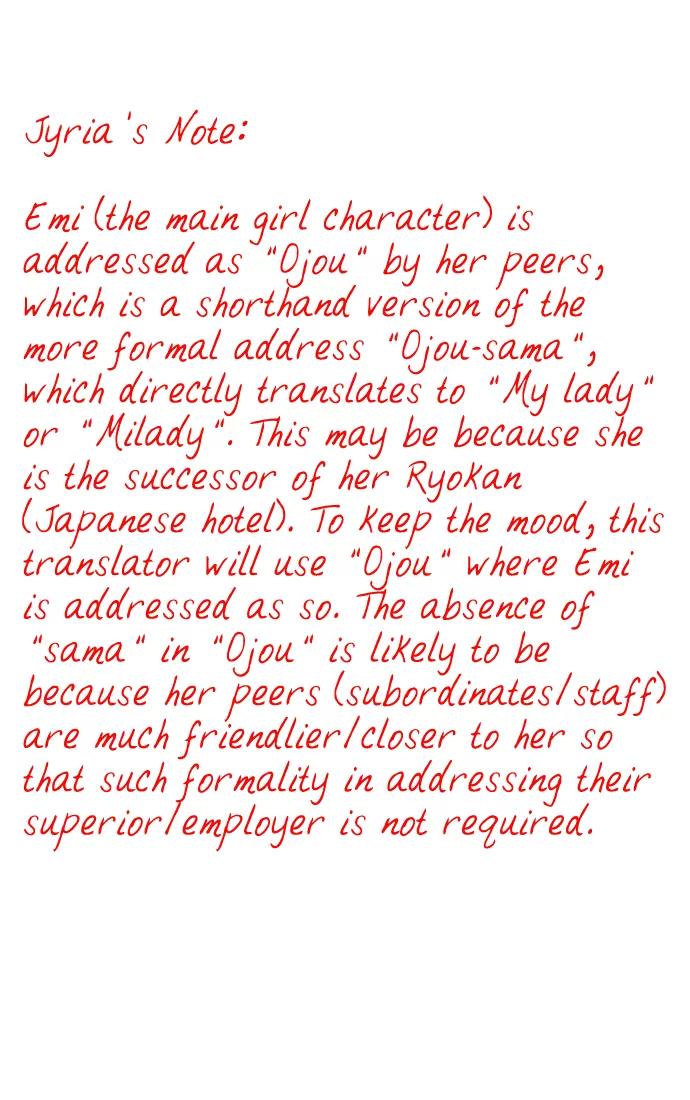 Jyria's Note:
Emi (the main girl character) is
addressed as "Ojou" by her peers,
which is a shorthand version of the
more formal address "Ojou-sama",
which directly translates to "My lady"
or "Milady". This may be because she
is the successor of her Ryokan
(Japanese hotel). To keep the mood, this
translator will use "Ojou" where Emi
is addressed as so. The absence of
"sama" in "Ojou" is likely to be
because her peers (subordinates/staff)
are much friendlier/closer to her so
that such formality in addressing their
superior/employer is not required.